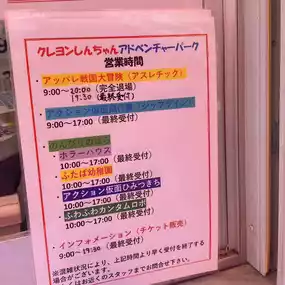 クレヨンしんちゃんアドベンチャーパーク
営業時間
・アッパレ戦国大冒険(アスレチック)
9:00~20:00(完全退場)
19:30(最終受付)
9:00~17:00(最終受付)
・ホラーハウス
10:00~17:00(最終受付)
・ふたば幼稚園
10:00~17:00(最終受付)
・アクション仮面ひみつきち
10:00~17:00(最終受付)
・ふわふわカンタムロボ
10:00~17:00(最終受付)
・インフォメーション(チケット販売)
9:00~19:30(最終受付)
※混雑状況により、上記時間より早く受付を終了する
場合がございます。
くはお近くのスタッフまでお問合せ下さい。